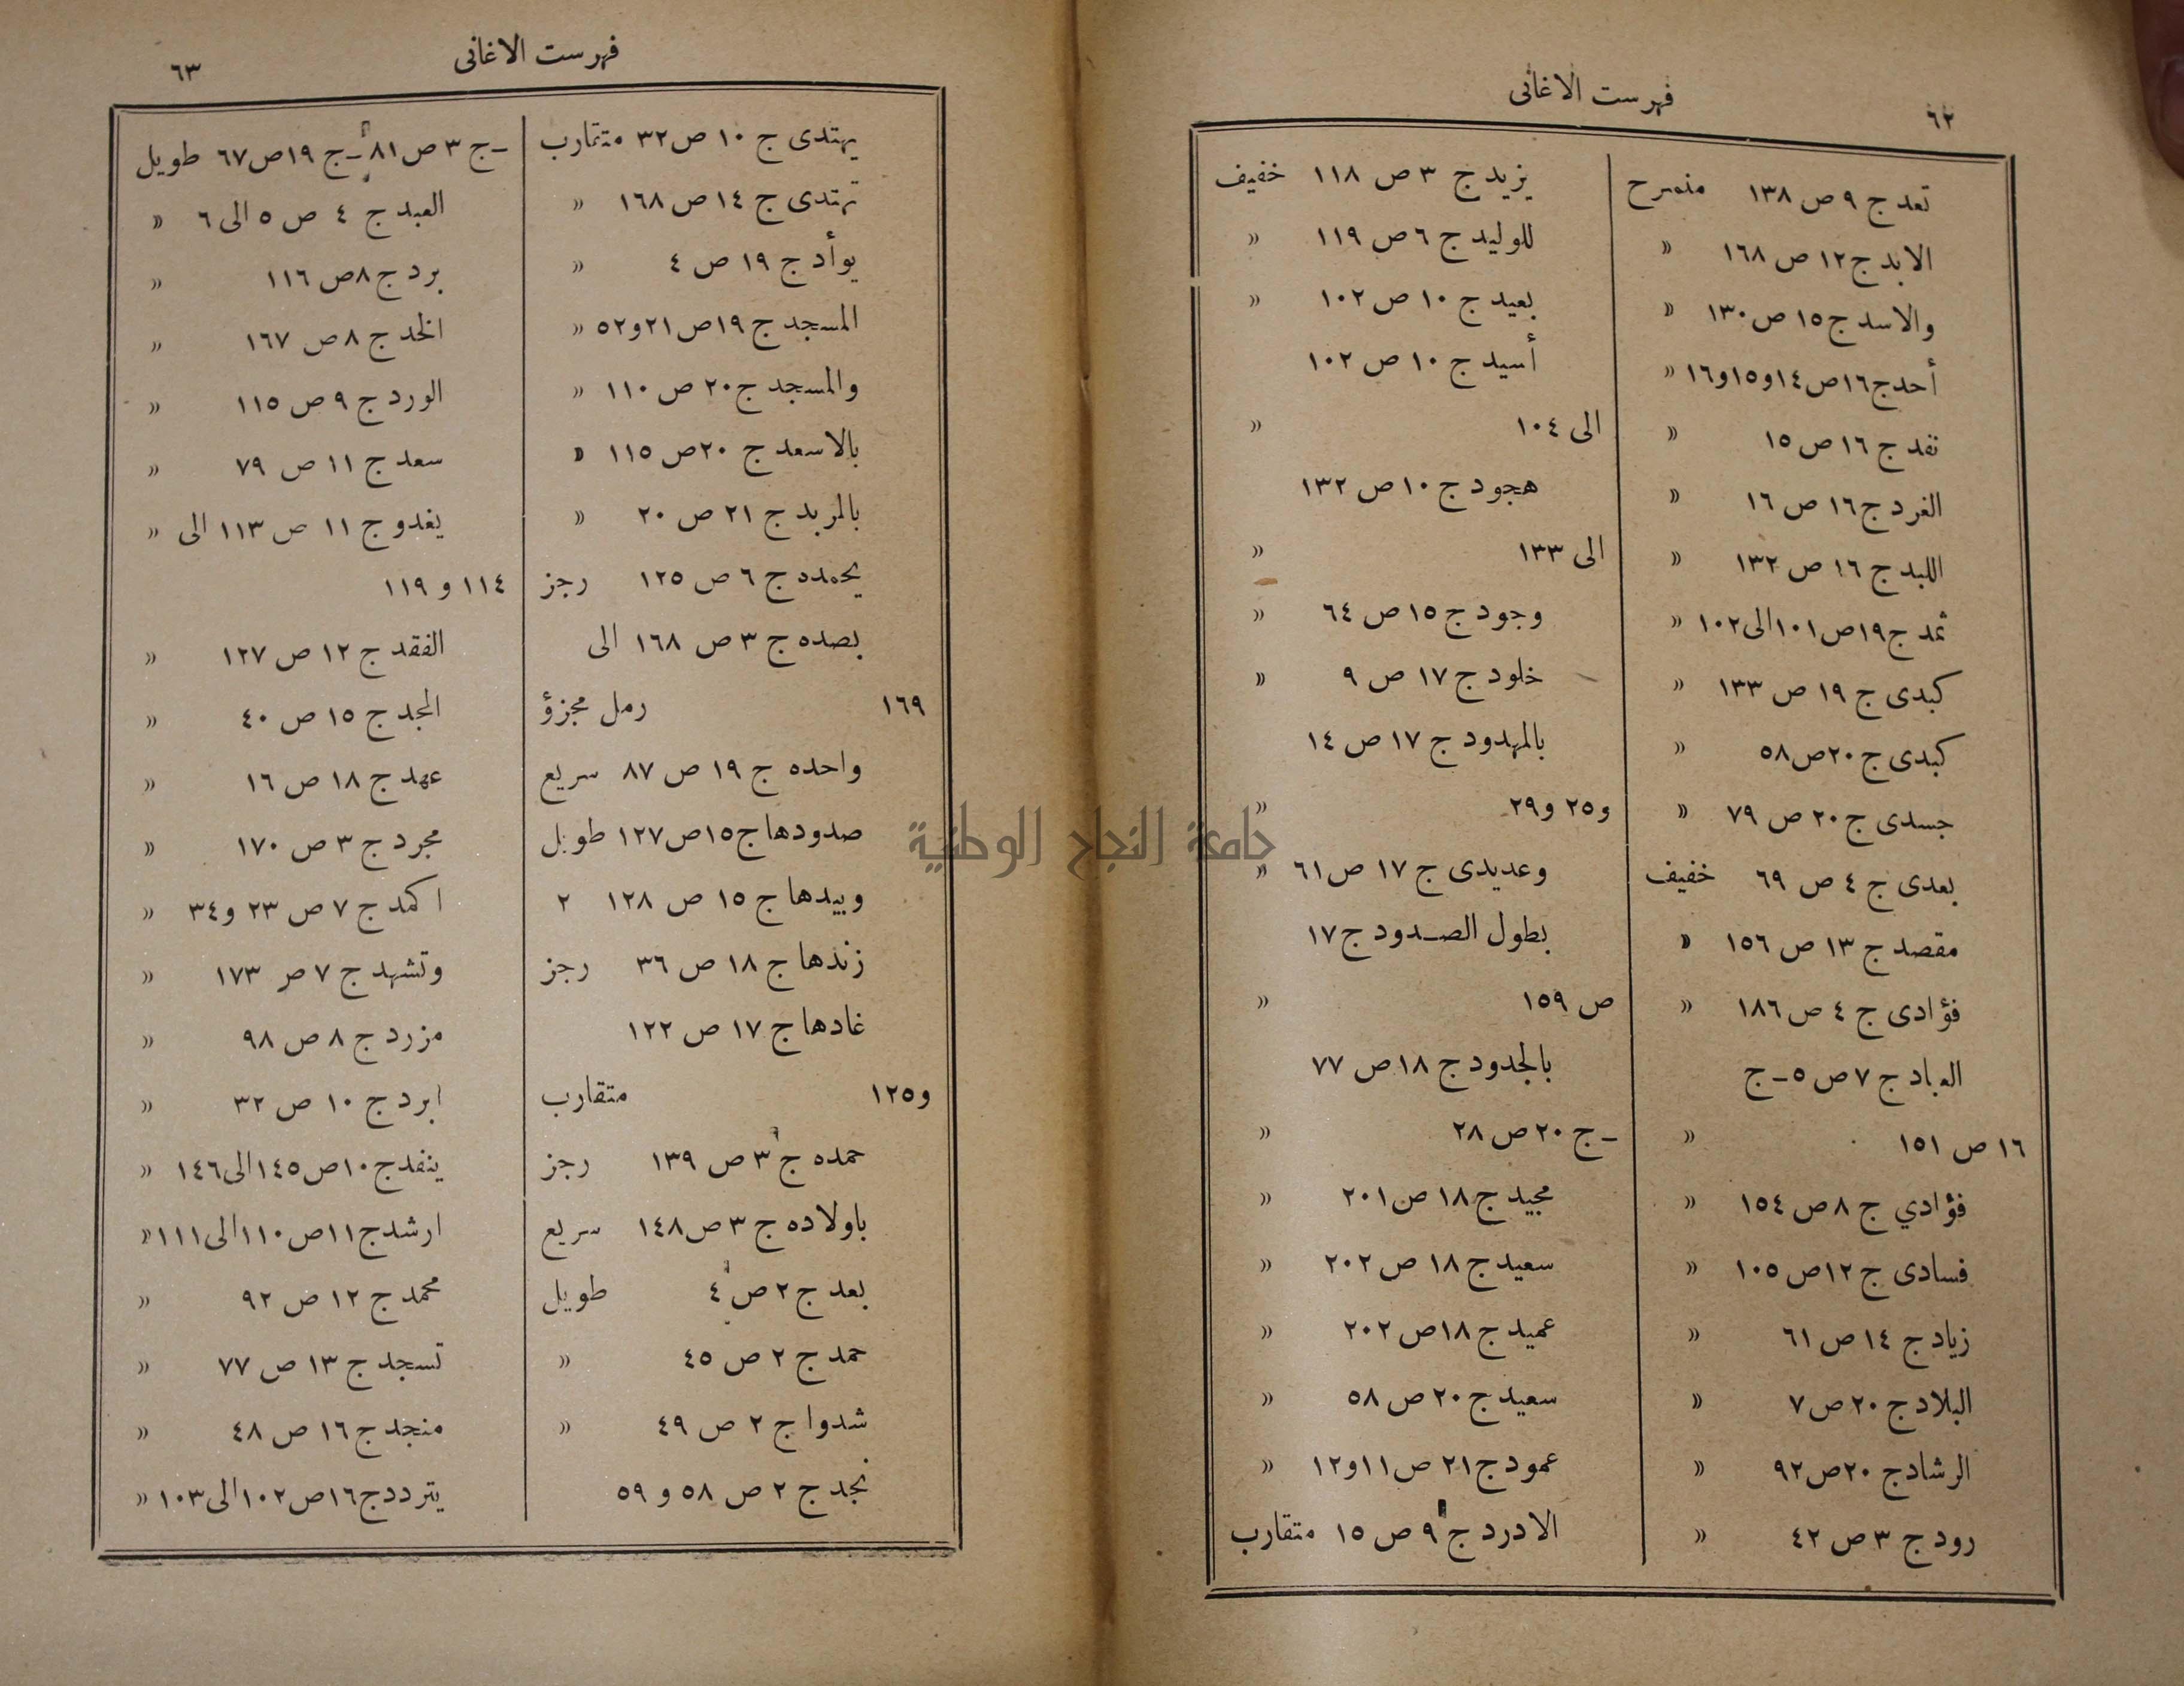 ٦٢
فهرست الاغانى
تعد ج ٩ ص ١٣٨ منسرح
الابد ج ١٢ ص ١٦٨ »
والاسد ج ١٥ ص ١٣٠ »
أحد ج ١٦ ص ١٤ و١٥ و١٦ »
تفد ج ١٦ ص ١٥ »
الغرد ج ١٦ ص ١٦ »
اللبد ج ١٦ ص ١٣٢ »
ثمد ج ١٩ ص ١٠١ الى ١٠٢ »
كبدى ج ١٩ ص ١٣٣ »
كبدى ج ٢٠ ص ٥٨ »
جسدى ج ٢٠ ص ٧٩ »
بعدى ج ٤ ص ٦٩ خفيف
مقصد ج ١٣ ص ١٥٦ »
فؤادى ج ٤ ص ١٨٦ »
العباد ج ٧ ص ٥ – ج
١٦ ص ١٥١ »
فؤادي ج ٨ ص ١٥٤ »
فسادى ج ١٢ ص ١٠٥ »
زياد ج ١٤ ص ٦١ »
البلاد ج ٢٠ ص ٧ »
الرشاد ج ٢٠ ص ٩٢ »
رود ج ٣ ص ٤٢ »
يزيد ج ٣ ص ١١٨ خفيف
للوليد ج ٦ ص ١١٩ »
بعيد ج ١٠ ص ١٠٢ »
أسيد ج ١٠ ص ١٠٢
الى ١٠٤ »
هجود ج ١٠ ص ١٣٢
الى ١٣٣ »
وجود ج ١٥ ص ٦٤ »
خلود ج ١٧ ص ٩ »
بالمهدود ج ١٧ ص ١٤
و٢٥ و٢٩ »
وعديدى ج ١٧ ص ٦١ »
بطول الصـدود ج ١٧
ص ١٥٩ »
بالجدود ج ١٨ ص ٧٧
– ج ٢٠ ص ٢٨ »
مجيد ج ١٨ ص ٢٠١ »
سعيد ج ١٨ ص ٢٠٢ »
عميد ج ١٨ ص ٢٠٢ »
سعيد ج ٢٠ ص ٥٨ »
عمود ج ٢١ ص ١١ و١٢ »
الادرد ج ٩ ص ١٥ متقارب
جامعة النجاح الوطنية
فهرست الاغانى
٦٣
يهتدى ج ١٠ ص ٣٢ متقارب
تهتدى ج ١٤ ص ١٦٨ »
يوأد ج ١٩ ص ٤ »
المسجد ج ١٩ ص ٢١ و٥٢ »
والمسجد ج ٢٠ ص ١١٠ »
بالاسعد ج ٢٠ ص ١١٥ »
بالمربد ج ٢١ ص ٢٠ »
يحمده ج ٦ ص ١٢٥ رجز
بصده ج ٣ ص ١٦٨ الى
١٦٩ رمل مجزؤ
واحده ج ١٩ ص ٨٧ سريع
صدودها ج ١٥ ص ١٢٧ طويل
وبيدها ج ١٥ ص ١٢٨ ٢
زندها ج ١٨ ص ٣٦ رجز
غادها ج ١٧ ص ١٢٢
و١٢٥ متقارب
حمده ج ٣ ص ١٣٩ رجز
باولاده ج ٣ ص ١٤٨ سريع
بعد ج ٢ ص ٤ طويل
حمد ج ٢ ص ٤٥ »
شدوا ج ٢ ص ٤٩ »
نجد ج ٢ ص ٥٨ و ٥٩
– ج ٣ ص ٨١ – ج ١٩ ص ٦٧ طويل
العبد ج ٤ ص ٥ الى ٦ »
برد ج ٨ ص ١١٦ »
الخد ج ٨ ص ١٦٧ »
الورد ج ٩ ص ١١٥ »
سعد ج ١١ ص ٧٩ »
يغدو ج ١١ ص ١١٣ الى »
١١٤ و ١١٩
الفقد ج ١٢ ص ١٢٧ »
المجد ج ١٥ ص ٤٠ »
عهد ج ١٨ ص ١٦ »
مجرد ج ٣ ص ١٧٠ »
اكمد ج ٧ ص ٢٣ و٣٤ »
وتشهد ج ٧ ص ١٧٣ »
مزرد ج ٨ ص ٩٨ »
ابرد ج ١٠ ص ٣٢ »
ينفد ج ١٠ ص ١٤٥ الى ١٤٦ »
ارشد ج ١١ ص ١١٠ الى ١١١ »
محمد ج ١٢ ص ٩٢ »
تسجد ج ١٣ ص ٧٧ »
منجد ج ١٦ ص ٤٨ »
يتردد ج ١٦ ص ١٠٢ الى ١٠٣ »